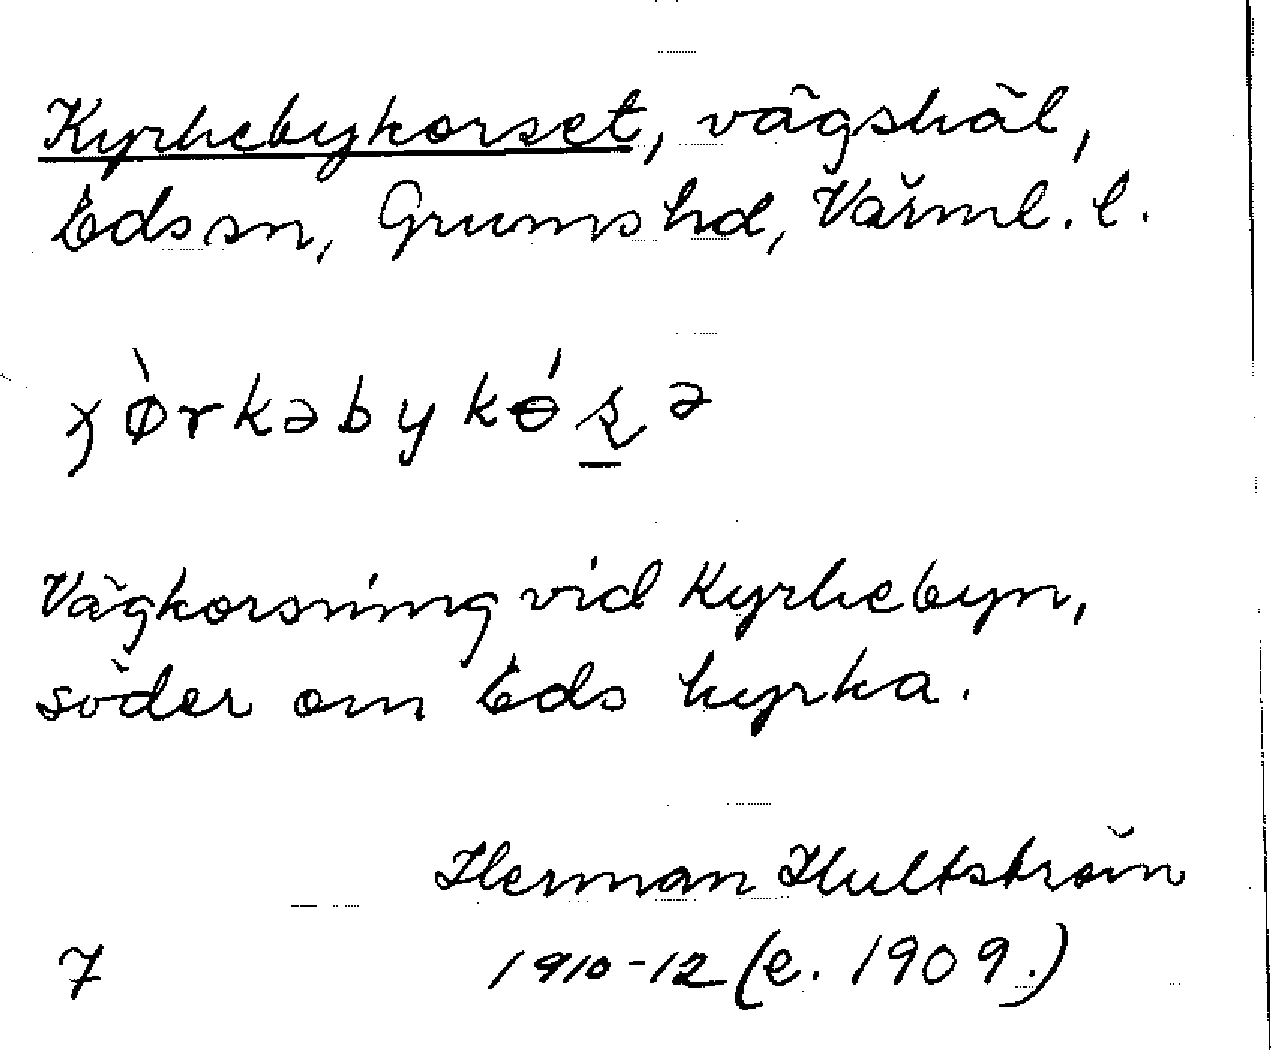 Kyrkebykorset, vägskäl,
Eds sn, Grums hd, Värml. l.
χø̀rkəbykɵ́ʂə
Vägkorsning vid Kyrkebyn,
söder om Eds kyrka.
Herman Hultström
7 1910-12 (e. 1909.)